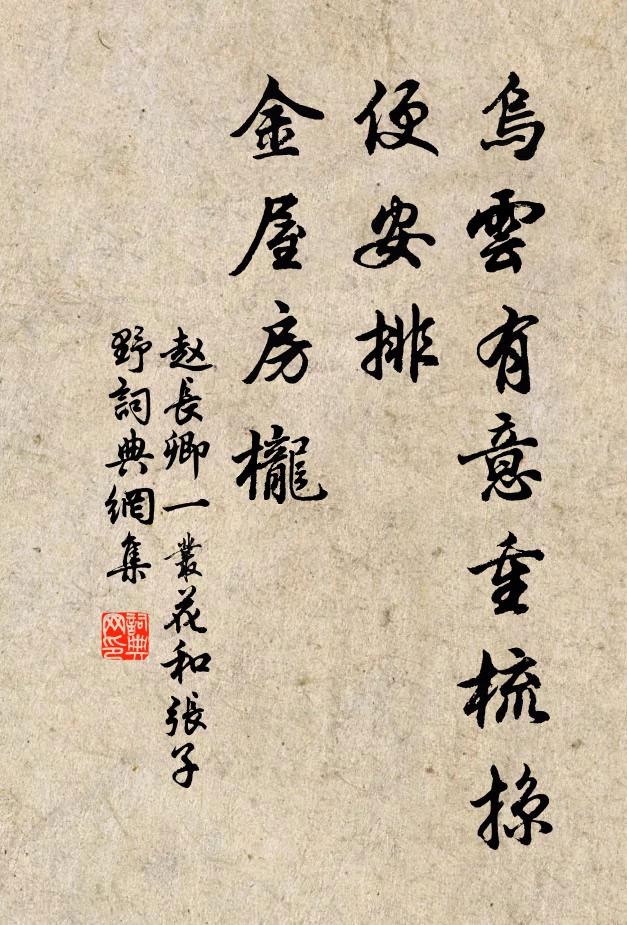 烏雲有意重梳掠
便安排
金屋房櫳
赵長卿一叢花和張子
野詞典網集
詞典网印